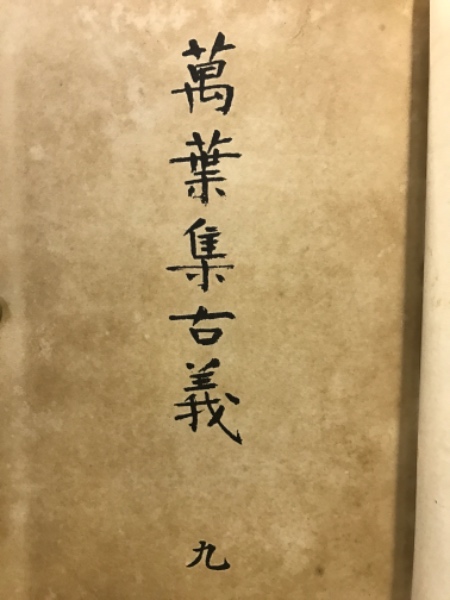 萬葉集古義
九